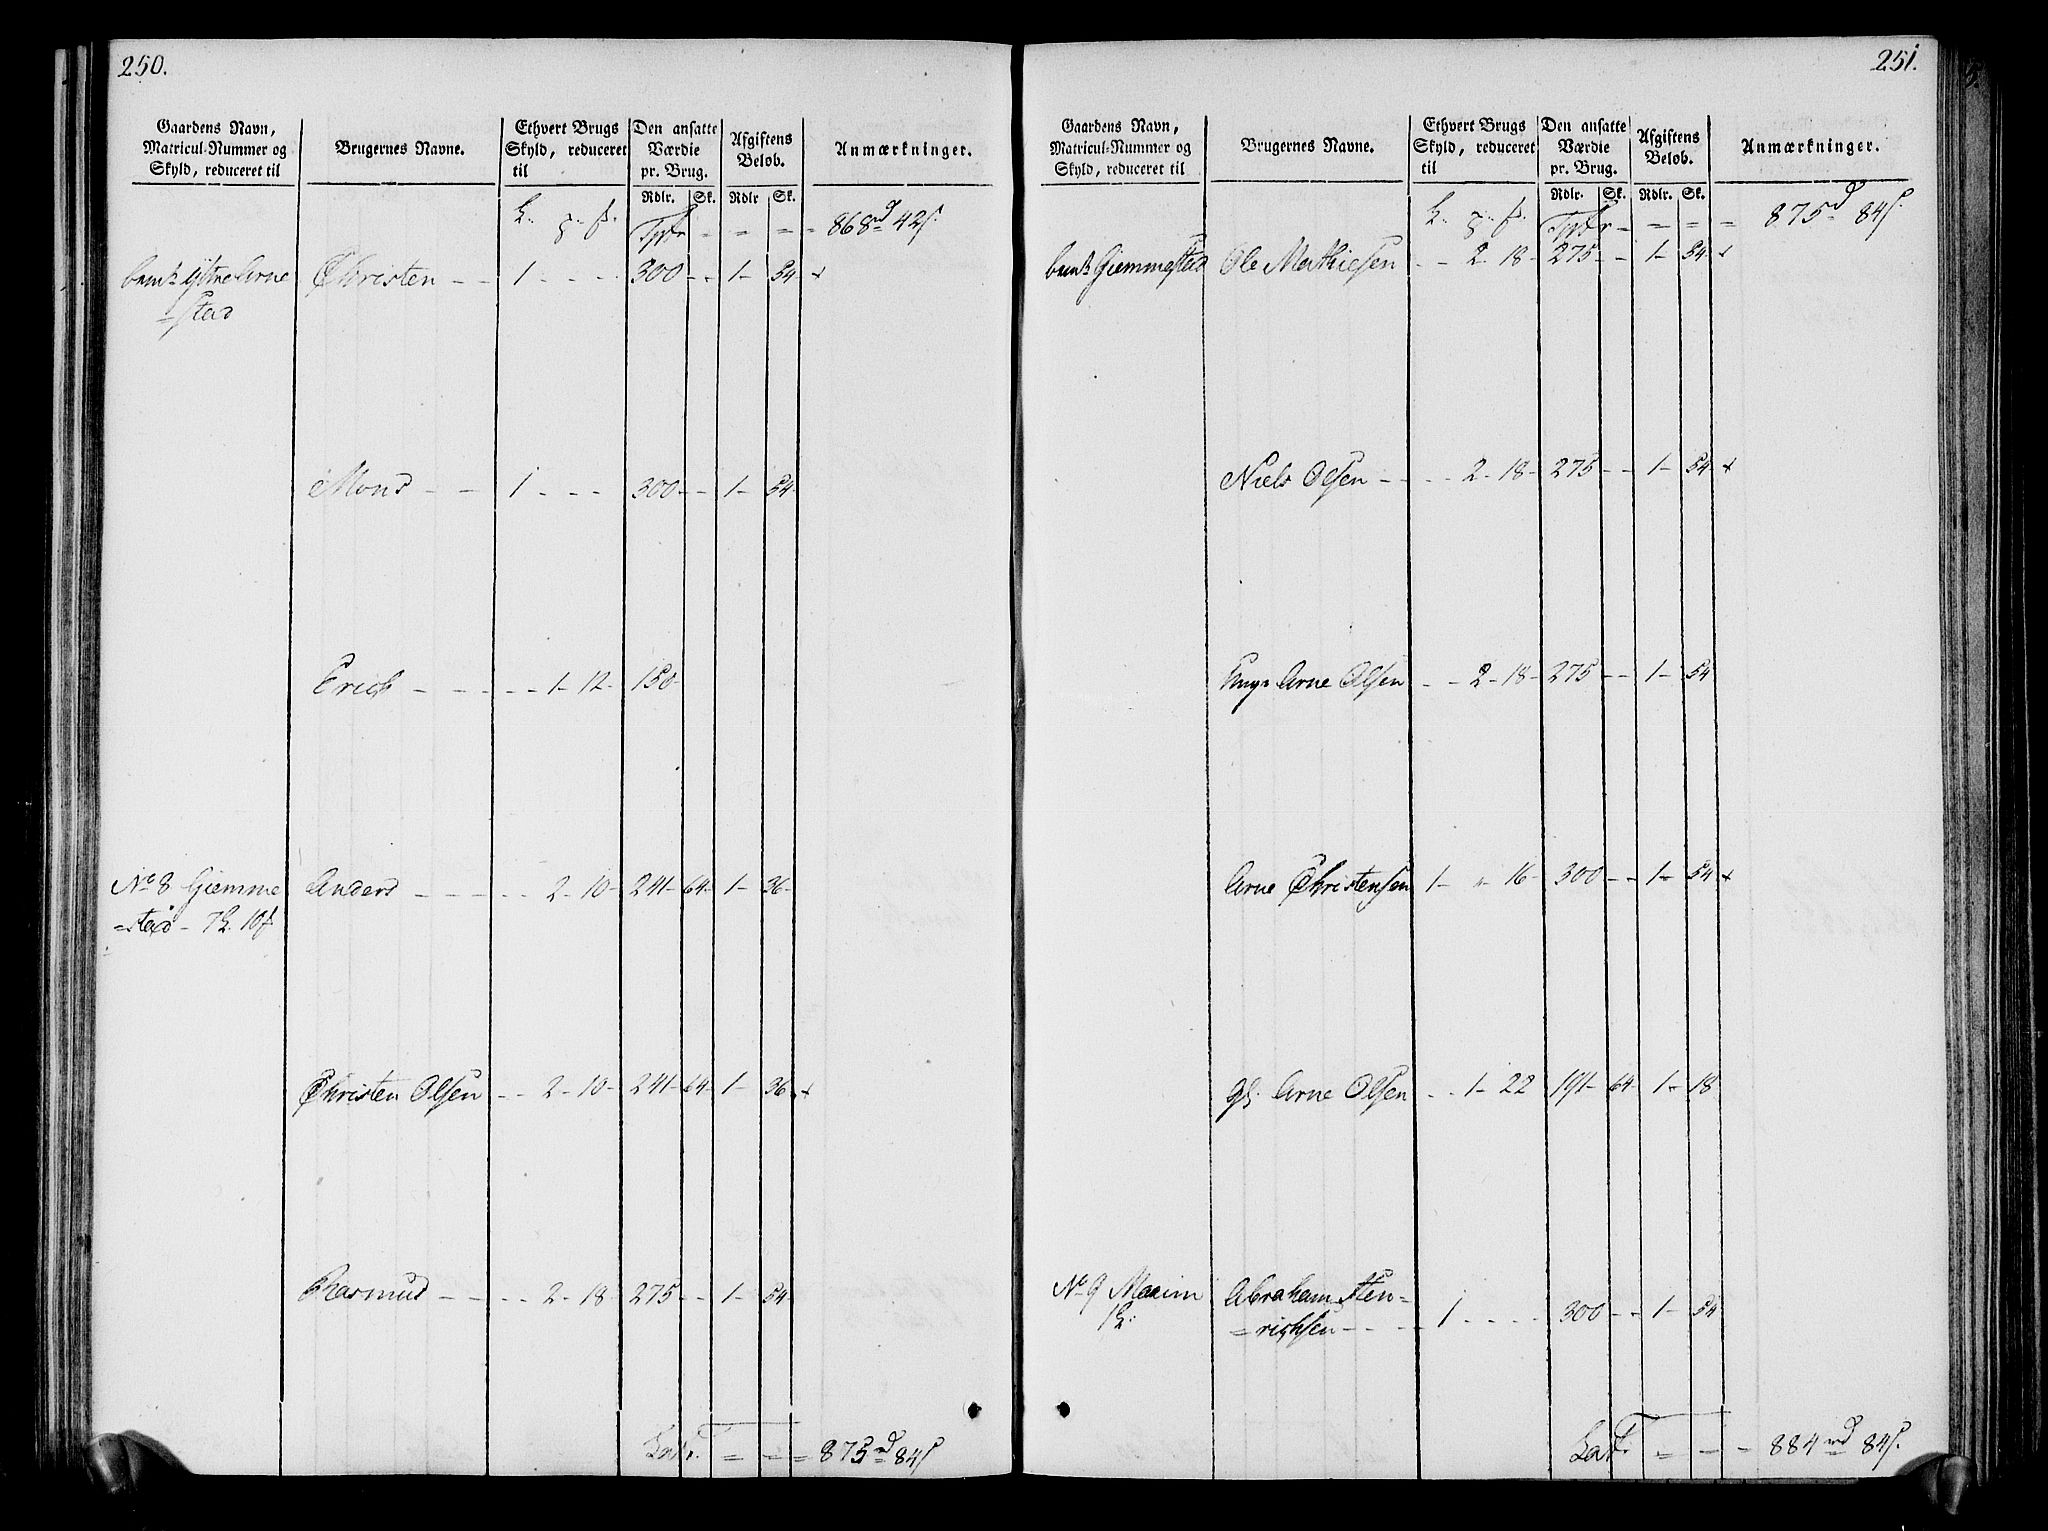 250.
Gaardens Navn, Matricul-Nummer og Skyld, reduceret til
Brugernes Navne.
Ethvert Brugs Skyld, reduceret til
Den ansatte Værdie pr. Brug.
Afgiftens Beløb.
Anmærkninger.
Rdlr. Sk. Rdlr Sk.
868 rd 42 s.
Christen - - 1 - - - 300 - - 1 - 54
=stad
Mons - - 1 - - - 300 - - 1 - 54
Erich - - - - 1 - 12 - 150
No 8 Giemme Anders - - - - 2 - 10 - 241 - 64 - 1 - 36
=stad -
Christen Olsen - - 2 - 10 - 241 - 64 - 1 - 36
Rasmus - - - - 2 - 18 - 275 - - 1 - 54
Lat. = = = 875 rd 84 s
251.
Gaardens Navn, Matricul-Nummer og Skyld, reduceret til
Brugernes Navne.
Ethvert Brugs Skyld, reduceret til
Den ansatte Værdie pr. Brug.
Afgiftens Beløb.
Anmærkninger.
Rdlr. Sk. Rdlr. Sk.
875 d 84 s.
Giemmestad Ole Mathiesen - - 2 - 18 - 275 - - 1 - 54
Niels Olsen - - - - 2 - 18 - 275 - - 1 - 54
Arne Olsen - - 2 - 18 - 275 - - 1 - 54
Arne Christensen 1 - " 16 - 300 - - 1 - 54
gl. Arne Olsen - - 1 - 22 191 - 64 - 1 - 18
No 9 Abraham Hen=
=richsen - - - - 1 - - - - 300 - - 1 - 54
Lat. = - - 884 rd 84 s.